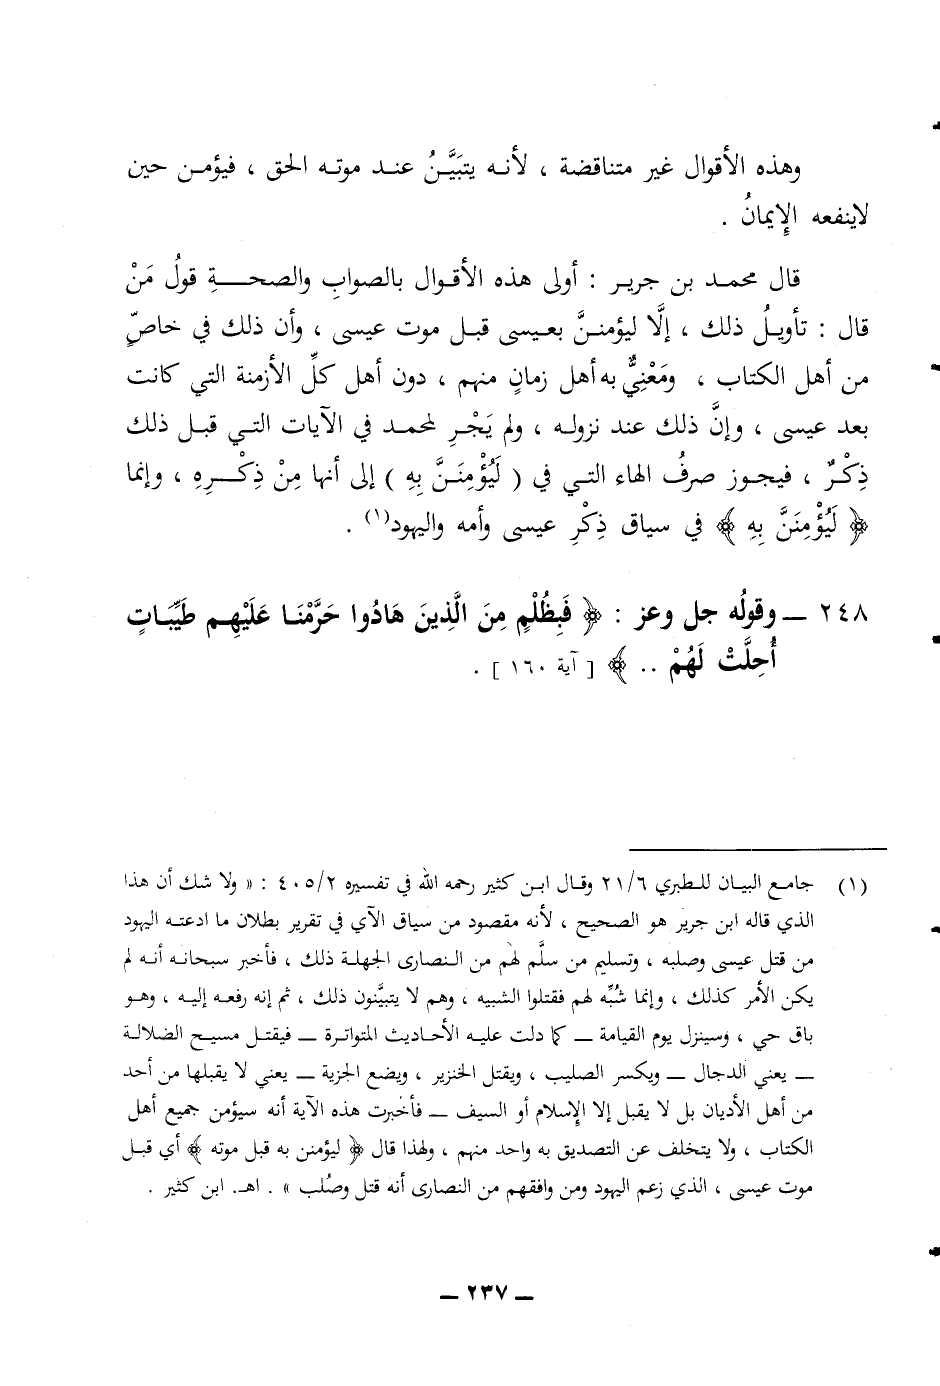 وهذه الأقوال غير متناقضة ، لأنه يتبَيَّنُ عند موته الحق ، فيؤمن حين
لاينفعه الإِيمانُ .
قال محمد بن جرير : أولى هذه الأقوال بالصوابِ والصحةِ قولُ مَنْ
قال : تأويلُ ذلك ، إلَّا ليؤمننَّ بعيسى قبل موت عيسى ، وأن ذلك في خاصٍّ
من أهل الكتاب ، ومَعْنِيٌّ به أهل زمانٍ منهم ، دون أهل كلِّ الأزمنة التي كانت
بعد عيسى ، وإنَّ ذلك عند نزوله ، ولم يَجْرِ لمحمد في الآيات التي قبل ذلك
ذِكْرٌ ، فيجوز صرفُ الهاء التي في ( لَيُؤْمِنَنَّ بِهِ ) إلى أنها مِنْ ذِكْرِهِ ، وإنما
﴿ لَيُؤْمِنَنَّ بِهِ ﴾ في سياق ذِكْرِ عيسى وأمه واليهود(١) .
٢٤٨ ــ وقولُه جل وعز : ﴿ فَبِظُلْمٍ مِنَ الَّذِينَ هَادُوا حَرَّمْنَا عَلَيْهِم طَيِّبَاتٍ
أُحِلَّتْ لَهُمْ .. ﴾ [ آية ١٦٠ ] .
(١) جامع البيان للطبري ٢١/٦ وقال ابن كثير رحمه الله في تفسيره ٤٠٥/٢ : « ولا شك أن هذا
الذي قاله ابن جرير هو الصحيح ، لأنه مقصود من سياق الآي في تقرير بطلان ما ادعته اليهود
من قتل عيسى وصلبه ، وتسليم من سلَّم لهم من النصارى الجهلة ذلك ، فأخبر سبحانه أنه لم
يكن الأمر كذلك ، وإنما شُبِّه لهم فقتلوا الشبيه ، وهم لا يتبيَّنون ذلك ، ثم إنه رفعه إليه ، وهو
باق حي ، وسينزل يوم القيامة ــ كما دلت عليه الأحاديث المتواترة ــ فيقتل مسيح الضلالة
ــ يعني الدجال ــ ويكسر الصليب ، ويقتل الخنزير ، ويضع الجزية ــ يعني لا يقبلها من أحد
من أهل الأديان بل لا يقبل إلا الإِسلام أو السيف ــ فأخبرت هذه الآية أنه سيؤمن جميع أهل
الكتاب ، ولا يتخلف عن التصديق به واحد منهم ، ولهذا قال ﴿ ليؤمنن به قبل موته ﴾ أي قبل
موت عيسى ، الذي زعم اليهود ومن وافقهم من النصارى أنه قتل وصُلب » . اهـ. ابن كثير .
ــ ٢٣٧ ــ